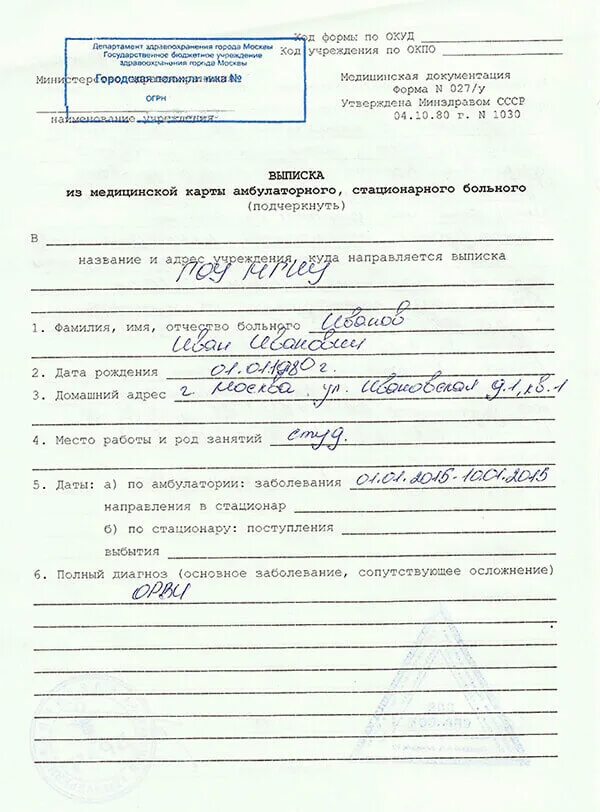 Код формы по ОКУД
Код учреждения по ОКПО
Департамент здравоохранения города Москвы
Государственное бюджетное учреждение
здравоохранения города Москвы
Городская поликлиника №
ОГРН
Министерство здравоохранения
наименование учреждения
Медицинская документация
Форма N 027/у
Утверждена Минздравом СССР
04.10.80 г. N 1030
ВЫПИСКА
из медицинской карты амбулаторного, стационарного больного
(подчеркнуть)
В
название и адрес учреждения, куда направляется выписка
ГОУ МГИУ
1. Фамилия, имя, отчество больного Иванов
Иван Иванович
2. Дата рождения 01.01.1980 г.
3. Домашний адрес г. Москва ул. Ивановская д.1, кв.1
4. Место работы и род занятий студ.
5. Даты: а) по амбулатории: заболевания 01.01.2015-10.01.2015
направления в стационар
б) по стационару: поступления
выбытия
6. Полный диагноз (основное заболевание, сопутствующее осложнение)
ОРВИ